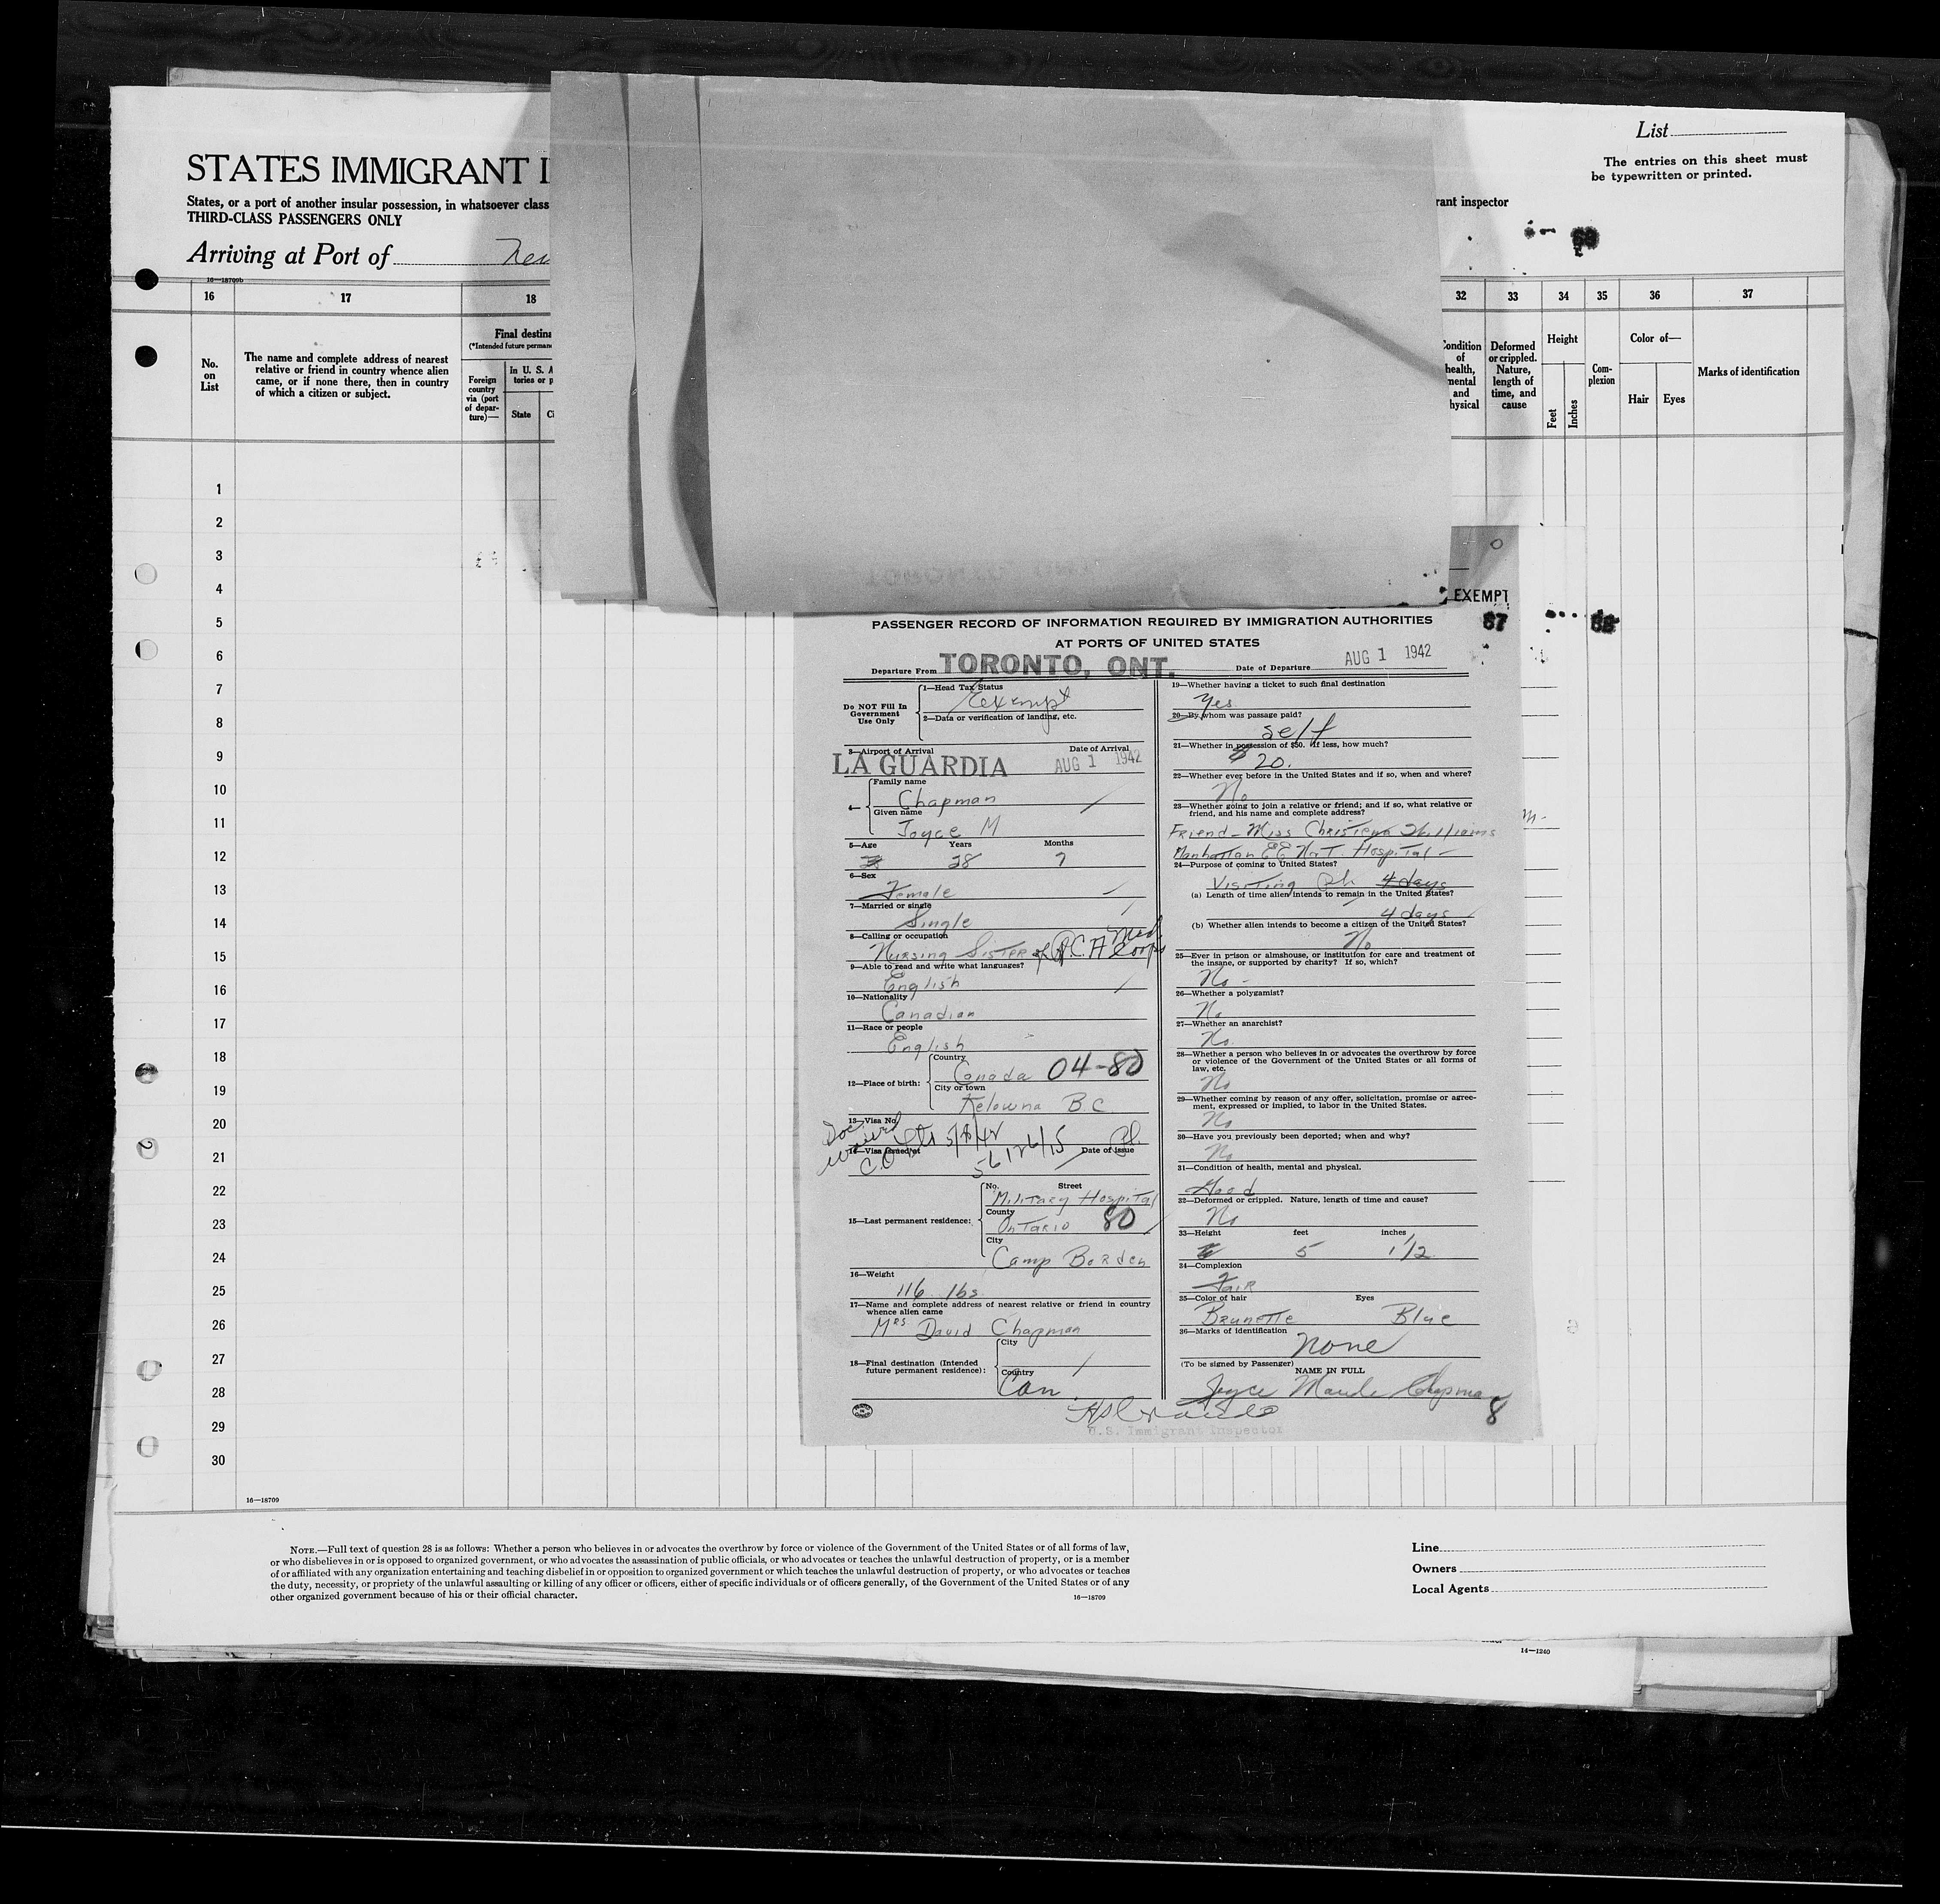 List
The entries on this sheet must
be typewritten or printed.
STATES IMMIGRANT I
States, or a port of another insular possession, in whatsoever class
rant inspector
THIRD-CLASS PASSENGERS ONLY
Arriving at Port of
16—18709b
16 17 18 32 33 34 35 36 37
No. on List
The name and complete address of nearest
relative or friend in country whence alien
came, or if none there, then in country
of which a citizen or subject.
Final destina
(*Intended future perman
Foreign country via (port of depar-ture)—
In U. S. A
tories or p
State
Condition of health, mental and physical
Deformed or crippled. Nature, length of time, and cause
Height
Feet Inches
Com-plexion
Color of—
Hair Eyes
Marks of identification
1
2
3
4
5
6
7
8
9
10
11
12
13
14
15
16
17
18
19
20
21
22
23
24
25
26
27
28
29
30
16—18709
EXEMPT
67
PASSENGER RECORD OF INFORMATION REQUIRED BY IMMIGRATION AUTHORITIES
AT PORTS OF UNITED STATES
Departure From TORONTO, ONT. Date of Departure AUG 1 1942
Do NOT Fill In
Government
Use Only
1—Head Tax Status
Exempt
2—Data or verification of landing, etc.
3—Airport of Arrival Date of Arrival
LA GUARDIA AUG 1 1942
4— Family name
Chapman
Given name
Joyce M
5—Age Years Months
28 7
6—Sex
Female
7—Married or single
Single
8—Calling or occupation
Nursing Sister of R.C.A Med Corps
9—Able to read and write what languages?
English
10—Nationality
Canadian
11—Race or people
English
12—Place of birth: Country
Canada 04-80
City or town
Kelowna B.C.
13—Visa No.
14—Visa issued at Date of issue
15—Last permanent residence: No. Street
Military Hospital
County
Ontario 80
City
Camp Borden
16—Weight
116 lbs.
17—Name and complete address of nearest relative or friend in country
whence alien came
Mrs David Chapman
18—Final destination (Intended
future permanent residence):
City
Country
Can.
19—Whether having a ticket to such final destination
Yes
20—By whom was passage paid?
self
21—Whether in possession of $50. If less, how much?
$20.
22—Whether ever before in the United States and if so, when and where?
No
23—Whether going to join a relative or friend; and if so, what relative or
friend, and his name and complete address?
Friend - Miss Christena Williams
Manhattan EE NaT. Hospital -
24—Purpose of coming to United States?
Visiting 4 days
(a) Length of time alien intends to remain in the United States?
4 days
(b) Whether alien intends to become a citizen of the United States?
No
25—Ever in prison or almshouse, or institution for care and treatment of
the insane, or supported by charity? If so, which?
No -
26—Whether a polygamist?
No
27—Whether an anarchist?
No.
28—Whether a person who believes in or advocates the overthrow by force
or violence of the Government of the United States or all forms of
law, etc.
No
29—Whether coming by reason of any offer, solicitation, promise or agree-
ment, expressed or implied, to labor in the United States.
No
30—Have you previously been deported; when and why?
No
31—Condition of health, mental and physical.
Good
32—Deformed or crippled. Nature, length of time and cause?
No
33—Height feet inches
5 1 1/2
34—Complexion
Fair
35—Color of hair Eyes
Brunette Blue
36—Marks of identification
None
(To be signed by Passenger)
NAME IN FULL
Joyce Maude Chapman
8
U.S. Immigrant Inspector
NOTE.—Full text of question 28 is as follows: Whether a person who believes in or advocates the overthrow by force or violence of the Government of the United States or of all forms of law,
or who disbelieves in or is opposed to organized government, or who advocates the assassination of public officials, or who advocates or teaches the unlawful destruction of property, or is a member
of or affiliated with any organization entertaining and teaching disbelief in or opposition to organized government or which teaches the unlawful destruction of property, or who advocates or teaches
the duty, necessity, or propriety of the unlawful assaulting or killing of any officer or officers, either of specific individuals or of officers generally, of the Government of the United States or of any
other organized government because of his or their official character.
16—18709
Line
Owners
Local Agents
14—1240